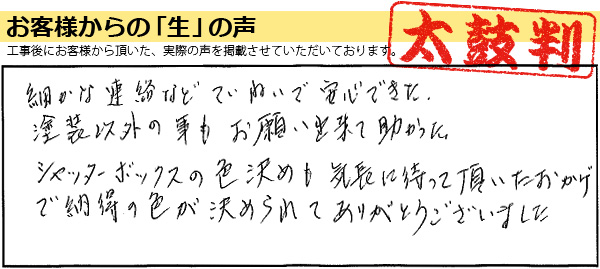 お客様からの「生」の声
工事後にお客様から頂いた、実際の声を掲載させていただいております。
太鼓判
細かな連絡などていねいで安心できた.
塗装以外の事もお願い出来て助かった。
シャッターボックスの色決めも気長に待って頂いたおかげ
で納得の色が決められてありがとうございました